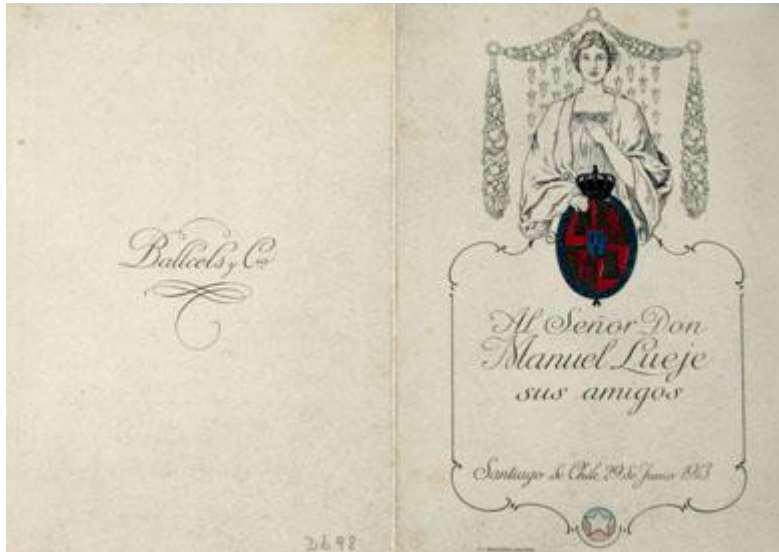 Ballcels y Co
Db 98
Al Señor Don
Manuel Lueje
sus amigos
Santiago de Chile, 29 de Junio 1913